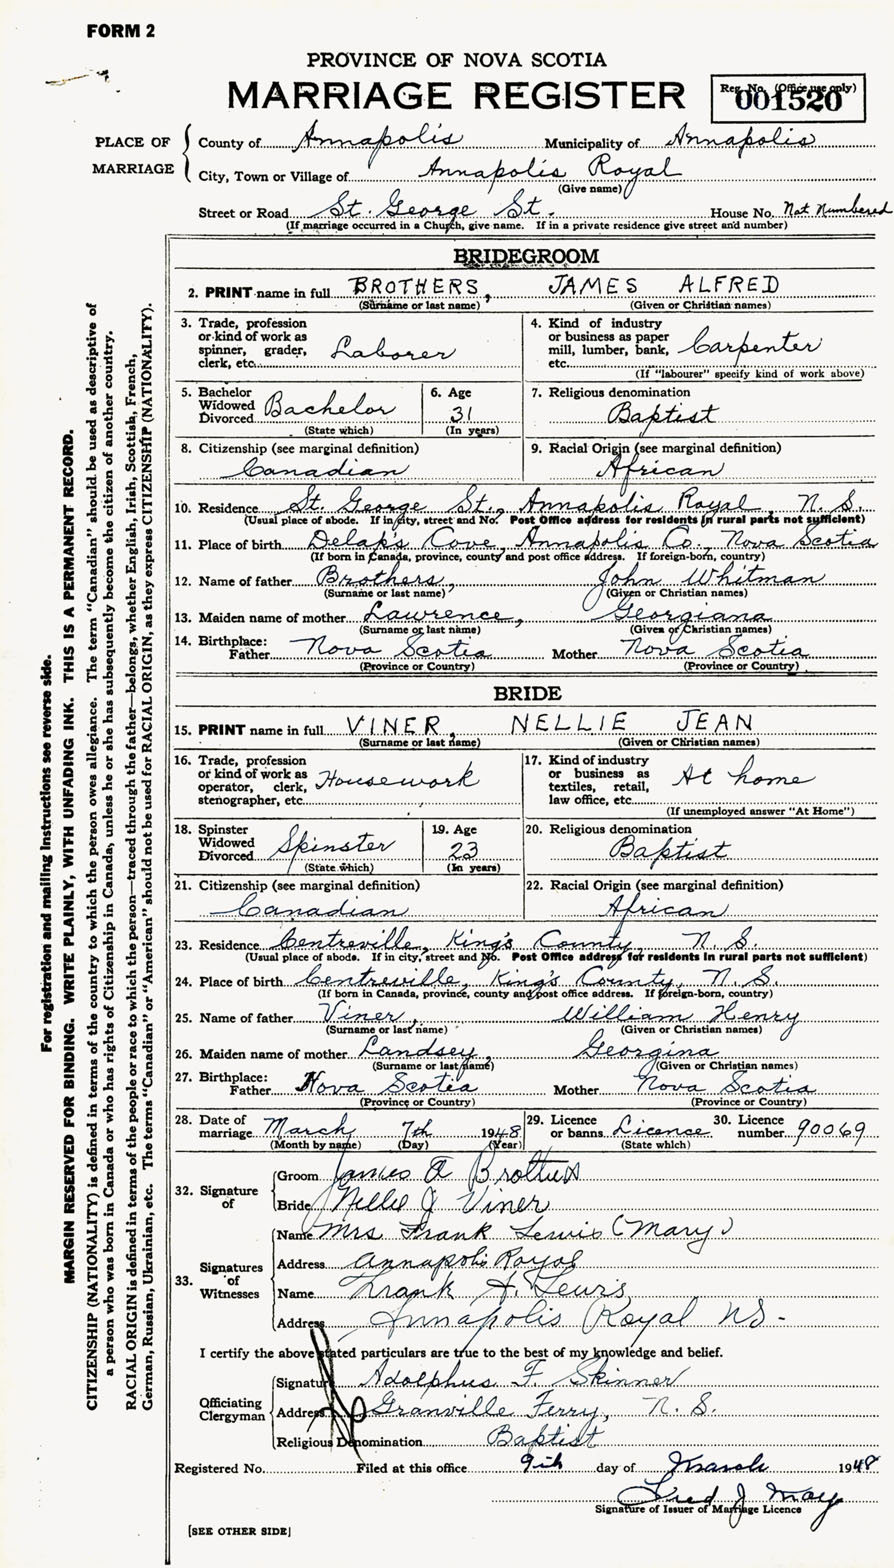 FORM 2
PROVINCE OF NOVA SCOTIA
MARRIAGE REGISTER
Reg. No. (Office use only)
001520
PLACE OF MARRIAGE
County of Annapolis Municipality of Annapolis
City, Town or Village of Annapolis Royal
(Give name)
Street or Road St. George St. House No. Not Numbered
(If marriage occurred in a Church, give name. If in a private residence give street and number)
BRIDEGROOM
2. PRINT name in full BROTHERS, JAMES ALFRED
(Surname or last name) (Given or Christian names)
3. Trade, profession or kind of work as spinner, grader, clerk, etc. Laborer
4. Kind of industry or business as paper mill, lumber, bank, etc. Carpenter
(If "labourer" specify kind of work above)
5. Bachelor Widowed Divorced Bachelor
(State which)
6. Age 31
(In years)
7. Religious denomination
Baptist
8. Citizenship (see marginal definition)
Canadian
9. Racial Origin (see marginal definition)
African
10. Residence St. George St., Annapolis Royal, N. S.
(Usual place of abode. If in city, street and No. Post Office address for residents in rural parts not sufficient)
11. Place of birth Delap's Cove, Annapolis Co., Nova Scotia
(If born in Canada, province, county and post office address. If foreign-born, country)
12. Name of father Brothers, John Whitman
(Surname or last name) (Given or Christian names)
13. Maiden name of mother Lawrence, Georgiana
(Surname or last name) (Given or Christian names)
14. Birthplace:
Father Nova Scotia Mother Nova Scotia
(Province or Country) (Province or Country)
BRIDE
15. PRINT name in full VINER, NELLIE JEAN
(Surname or last name) (Given or Christian names)
16. Trade, profession or kind of work as operator, clerk, stenographer, etc. Housework
17. Kind of industry or business as textiles, retail, law office, etc. At home
(If unemployed answer "At Home")
18. Spinster Widowed Divorced Spinster
(State which)
19. Age 23
(In years)
20. Religious denomination
Baptist
21. Citizenship (see marginal definition)
Canadian
22. Racial Origin (see marginal definition)
African
23. Residence Centreville, King's County, N. S.
(Usual place of abode. If in city, street and No. Post Office address for residents in rural parts not sufficient)
24. Place of birth Centreville, King's County, N. S.
(If born in Canada, province, county and post office address. If foreign-born, country)
25. Name of father Viner, William Henry
(Surname or last name) (Given or Christian names)
26. Maiden name of mother Landsey, Georgina
(Surname or last name) (Given or Christian names)
27. Birthplace:
Father Nova Scotia Mother Nova Scotia
(Province or Country) (Province or Country)
28. Date of marriage March 7th 1948
(Month by name) (Day) (Year)
29. Licence or banns Licence
(State which)
30. Licence number 90069
32. Signature of
Groom James A Brothers
Bride Nellie J Viner
33. Signatures of Witnesses
Name Mrs Frank Lewis (Mary)
Address Annapolis Royal
Name Frank A. Lewis
Address Annapolis Royal NS-
I certify the above stated particulars are true to the best of my knowledge and belief.
Officiating Clergyman
Signature Adolphus F. Skinner
Address Granville Ferry, N. S.
Religious Denomination Baptist
Registered No. Filed at this office 9th day of March 1948
Fred J May
Signature of Issuer of Marriage Licence
[SEE OTHER SIDE]
For registration and mailing instructions see reverse side.
MARGIN RESERVED FOR BINDING. WRITE PLAINLY, WITH UNFADING INK. THIS IS A PERMANENT RECORD.
CITIZENSHIP (NATIONALITY) is defined in terms of the country to which the person owes allegiance. The term "Canadian" should be used as descriptive of
a person who was born in Canada or who has rights of Citizenship in Canada, unless he or she has subsequently become the citizen of another country.
RACIAL ORIGIN is defined in terms of the people or race to which the person—traced through the father—belongs, whether English, Irish, Scottish, French,
German, Russian, Ukrainian, etc. The terms "Canadian" or "American" should not be used for RACIAL ORIGIN, as they express CITIZENSHIP (NATIONALITY).